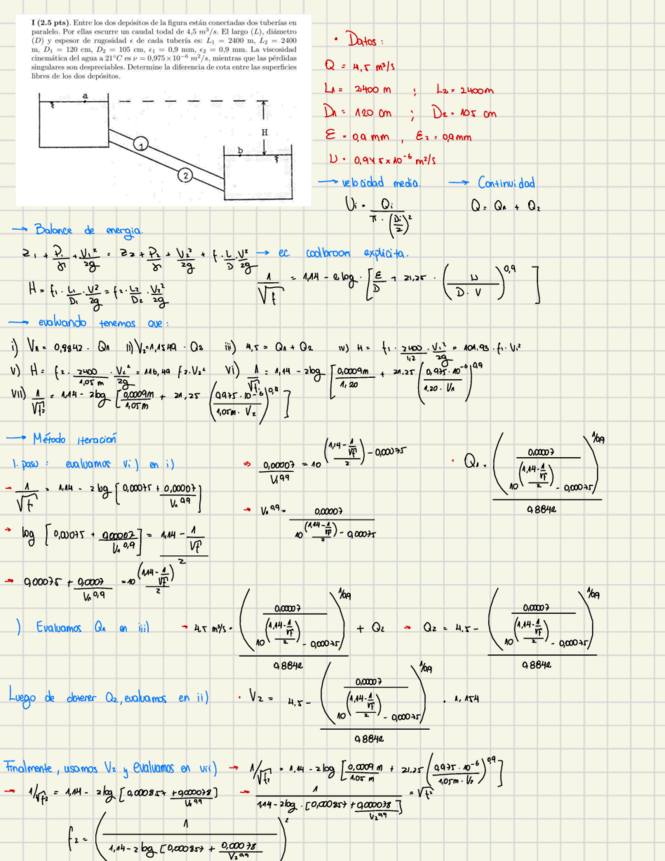 I (2.5 pts). Entre los dos depósitos de la figura están conectadas dos tuberías en
paralelo. Por ellas escurre un caudal total de 4,5 m³/s. El largo (L), diámetro
(D) y espesor de rugosidad ε de cada tubería es: L₁ = 2400 m, L₂ = 2400
m, D₁ = 120 cm, D₂ = 105 cm, ε₁ = 0,9 mm, ε₂ = 0,9 mm. La viscosidad
cinemática del agua a 21°C es ν = 0,975 × 10⁻⁶ m²/s, mientras que las pérdidas
singulares son despreciables. Determine la diferencia de cota entre las superficies
libres de los dos depósitos.
a
H
1
b
2
• Datos:
Q = 4,5 m³/s
L₁ = 2400 m ; L₂ = 2400m
D₁ = 120 cm ; D₂ = 105 cm
E = 0,9 mm , E₂ = 0,9mm
υ = 0,975 x10⁻⁶ m²/s
→ velocidad media. → Continuidad
Ui = Qi / π · (Di/2)² Q = Q₁ + Q₂
→ Balance de energia.
z₁ + P₁/γ + V₁²/2g = z₂ + P₂/γ + V₂²/2g + f · L/D · V²/2g → ec coolbroon explicita.
H = f₁ · L₁/D₁ · V²/2g = f₂ · L₂/D₂ · V₂²/2g 1/√f = 1,14 - 2log · [E/D + 21,25 · (υ / D · V)^0,9]
→ evaluando tenemos que:
i) V₁ = 0,8842 · Q₁ ii) V₂ = 1,1549 · Q₂ iii) 4,5 = Q₁ + Q₂ iv) H = f₁ · 2400/1,2 · V₁²/2g = 101,93 · f₁ · V₁²
v) H = f₂ · 2400/1,05 m · V₂²/2g = 116,49 f₂ · V₂² vi) 1/√f₁ = 1,14 - 2log [0,0009m/1,20 + 21,25 (0,975 · 10⁻⁶/1,20 · V₁)^0,9]
vii) 1/√f₂ = 1,14 - 2log [0,0009m/1,05m + 21,25 (0,975 · 10⁻⁶/1,05m · V₂)^0,9]
→ Método iteración
1. paso: evaluamos vi) en i)
→ 1/√f = 1,14 - 2log [0,00075 + 0,00007/V₁^0,9]
→ log [0,00075 + 0,00007/V₁^0,9] = (1,14 - 1/√f)/2
→ 0,00075 + 0,0007/V₁^0,9 = 10^((1,14 - 1/√f)/2)
→ 0,00007/V₁^0,9 = 10^((1,14 - 1/√f)/2) - 0,00075
→ V₁^0,9 = 0,00007 / (10^((1,14 - 1/√f)/2) - 0,00075)
· Q₁ = (0,00007 / (10^((1,14 - 1/√f)/2) - 0,00075))^(1/0,9) / 0,8842
) Evaluamos Q₁ en iii) → 4,5 m³/s = (0,00007 / (10^((1,14 - 1/√f)/2) - 0,00075))^(1/0,9) / 0,8842 + Q₂ → Q₂ = 4,5 - (0,00007 / (10^((1,14 - 1/√f)/2) - 0,00075))^(1/0,9) / 0,8842
Luego de obtener Q₂, evaluamos en ii) · V₂ = 4,5 - (0,00007 / (10^((1,14 - 1/√f)/2) - 0,00075))^(1/0,9) / 0,8842 · 1,154
Finalmente, usamos V₂ y evaluamos en vii) → 1/√f₂ = 1,14 - 2log [0,0009 m/1,05 m + 21,25 (0,975 · 10⁻⁶/1,05m · V₂)^0,9]
→ 1/√f₂ = 1,14 - 2log [0,000857 + 0,000078/V₂^0,9] → 1 / (1,14 - 2log · [0,000857 + 0,000078/V₂^0,9]) = √f₂
f₂ = (1 / (1,14 - 2log [0,000857 + 0,00078/V₂^0,9]))²